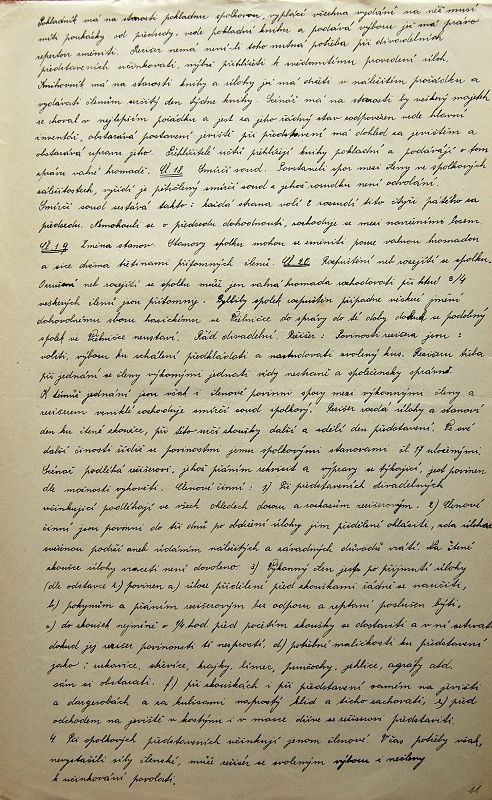 Pokladník má na starosti pokladnu spolkovou, vyplácí všechna vydání na něž musí
míti poukázky od předsedy, vede pokladní knihu a podává výboru jež má právo
repertoir změniti. Režisér nemá není-li toho nutná potřeba při divadelních
představeních účinkovati, nýbrž přihlížeti k svědomitému provedení úloh.
Knihovník má na starosti knihy a úlohy jež má držeti v náležitém pořádku a
vydávati členům určitý den týdne knihy. Scénář má na starosti by veškerý majetek
se choval v nejlepším pořádku a jest za jeho řádný stav zodpovědен vede hlavní
inventář, obstarává postavení jeviště při představení má dohled za jevištěm a
obstarává úpravu jeho. Přehlížitelé účtů přehlížejí knihy pokladní a podávají o tom
zprávu valné hromadě. Čl. 18. Smírčí soud. Povstane-li spor mezi členy ve spolkových
záležitostech, vyřídí je pětičlenný smírčí soud z jehož rozsudku není odvolání.
Smírčí soud sestává takto: každá strana volí 2 rozsudí tito čtyři pátého za
předsedu. Nemohou-li se o předsedu dohodnouti, rozhoduje se mezi navrženými losem.
Čl. 19 Změna stanov. Stanovy spolku mohou se změniti pouze valnou hromadou
a sice dvěma třetinami přítomných členů. Čl. 20. Rozpuštění neb rozejití se spolku.
neb rozejití se spolku může jen valná hromada rozhodovati při které 3/4
veškerých členů jsou přítomny. Byl-li by spolek rozpuštěn připadne veškeré jmění
dobrovolnému sboru hasičskému ve Vlčnice do správy do té doby dokud se podobný
spolek ve Vlčnice neustaví. Řád divadelní. Režisér: Povinnosti režiséra jsou:
voliti, výboru ku schálení předkládati a nastudovati zvolený kus. Režiséru třeba
při jednání se členy výkonnými jednati vždy nestranně a společensky správně.
K témuž jednání jsou však i členové povinni spory mezi výkonnými členy a
režisérem vzniklé rozhoduje smírčí soud spolkový. Režisér rozdá úlohy a stanoví
den ku čtené zkoušce, při této určí zkoušky další a sdělí den představení. Ve své
další činosti řídí se povinnostmi jemu spolkovými stanovami čl. 17 uloženými.
Scénář podléhá režiséroví, jehož přáním rekvisit a výpravy se týkající, jest povinen
dle možnosti vyhověti. Členové činní: 1) Při představeních divadelných
účinkující podléhají ve všech ohledech dozoru a rozkazům režisérovým. 2) Členové
činní jsou povinni do tří dnů po obdržení úlohy jim přidělené ohlásiti, zda úlohu
svěřenou podrží aneb udáním náležitých a závadných důvodů vrátí. Na čtené
zkoušce úlohy vraceti není dovoleno. 3) Výkonný člen jest po přijmutí úlohy
(dle odstavce 2) povinen a) úlohu přidělené před zkouškami řádně se naučiti,
b) pokynům a přáním režisérovým bez odporu a reptání poslušen býti,
c) do zkoušek nejméně o 1/4 hod před početím zkoušky se dostaviti a v ní setrvati
dokud jej režiser povinosti té nesprostí, d) potřební maličkosti ku představení
jako: rukavice, střevíce, krajky, límec, punčochy, jehlice, agrafy atd.
sám si obstarati. f) při zkouškách i při představení samém na jevišti
a dargerobách a za kulisami naprostý klid a ticho zachovati, e) před
odchodem na jeviště v kostýmu i v masce dříve se režiseroví představiti.
4. Při spolkových představeních účinkují jenom členové. V čas potřeby však,
nevystačili síly členské, může režisér se svolením výboru i nečleny
k účinkování povolati.
11